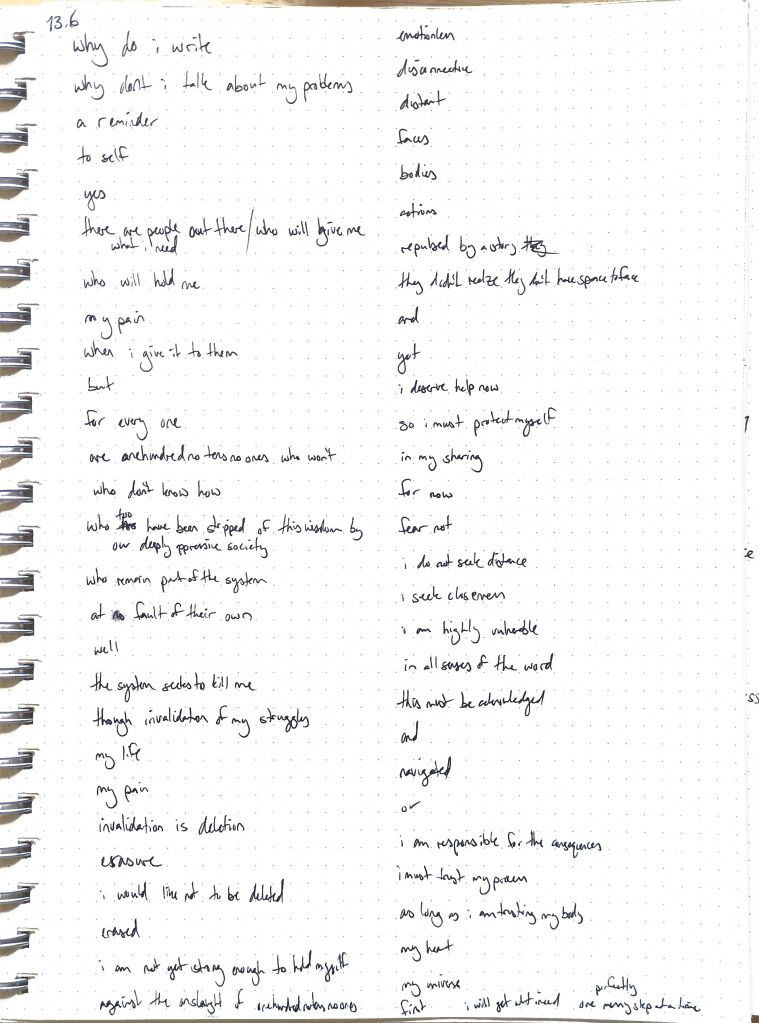 13.6
why do i write
why dont i talk about my problems
a reminder
to self
yes
there are people out there/who will give me
what i need
who will hold me
my pain
when i give it to them
but
for every one
are onehundrednotensnoones who won't
who don't know how
who too have been stripped of this wisdom by
our deeply oppressive society
who remain part of the system
at no fault of their own
well
the system seeks to kill me
though invalidation of my struggles
my life
my pain
invalidation is deletion
erasure
i would like not to be deleted
erased
i am not yet strong enough to hold myself
against the onslaught of onehundrednotensnoones
emotionless
disconnective
distant
faces
bodies
actions
repulsed by a story
they didn't realize they don't have space to face
and
yet
i deserve help now
so i must protect myself
in my sharing
for now
fear not
i do not seek distance
i seek closeness
i am highly vulnerable
in all senses of the word
this must be acknowledged
and
navigated
or
i am responsible for the consequences
i must trust my process
as long as i am trusting my body
my heart
my
first i will get what i need perfectly one step at a time